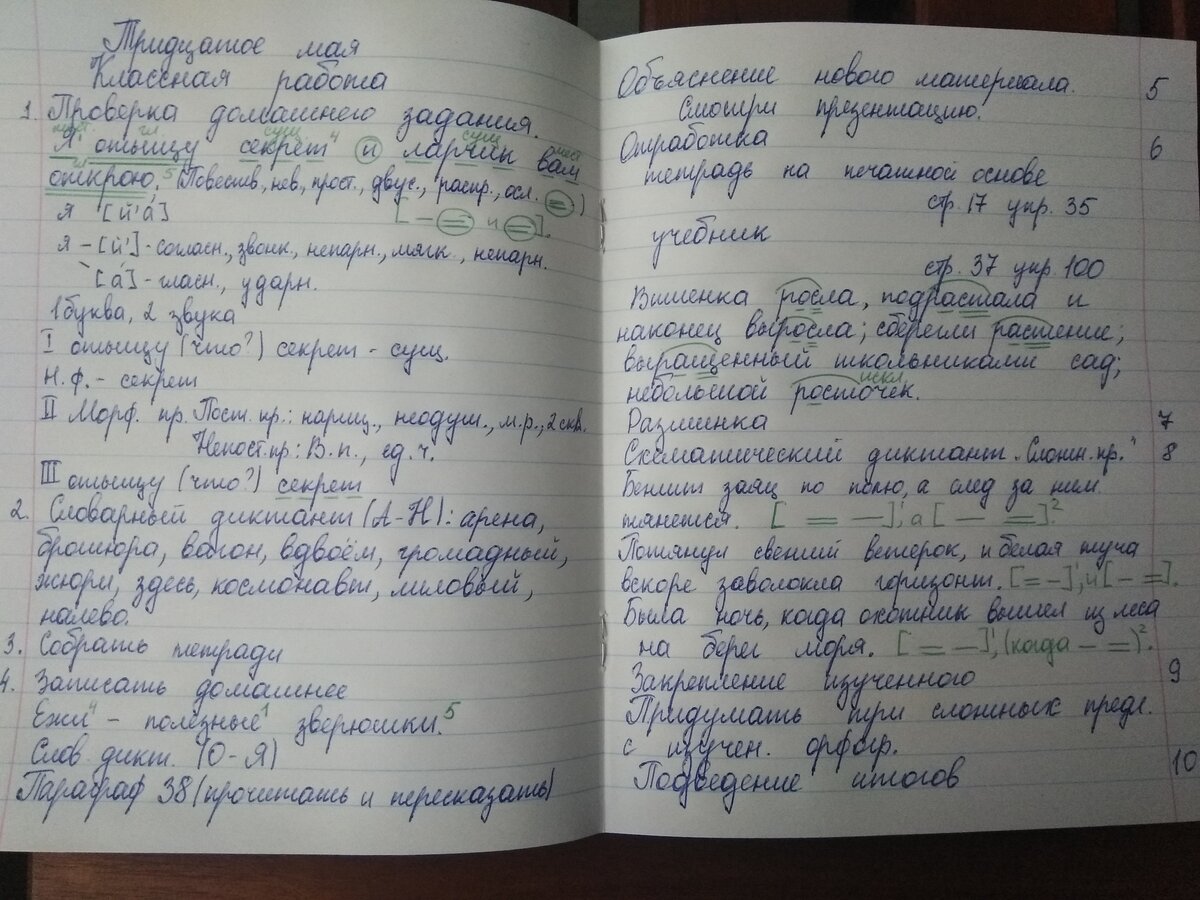 Тридцатое мая
Классная работа
1. Проверка домашнего задания.
мест. гл. сущ. сущ. мест.
Я¹ отыщу секрет⁴ и ларчик вам
гл.
открою.⁵ (Повеств., нев., прост., двус., распр., осл. =)
Я [й'а́] [– = и =].
я – [й'] - согласн., звонк., непарн., мягк., непарн.
[а́] - гласн., ударн.
1 буква, 2 звука
I отыщу (что?) секрет - сущ.
Н.ф. - секрет
II Морф. пр. Пост. пр.: нариц., неодуш., м.р., 2 скл.
Непост. пр.: В.п., ед.ч.
III отыщу (что?) секрет
2. Словарный диктант (А-Н): арена,
брошюра, вагон, вдвоём, громадный,
жюри, здесь, космонавт, лиловый,
налево.
3. Собрать тетради
4. Записать домашнее
Ежи⁴ – полезные¹ зверюшки.⁵
Слов. дикт. (О-Я)
Параграф 38 (прочитать и пересказать)
Объяснение нового материала. 5
Смотри презентацию.
Отработка 6
тетрадь на печатной основе
стр. 17 упр. 35
учебник
стр. 37 упр. 100
Вишенка росла, подрастала и
наконец выросла; сберегли растение;
выращенный школьниками сад;
искл.
небольшой росточек.
Разминка 7
Схематический диктант „Сложн. пр." 8
Бежит заяц по полю, а след за ним
тянется. [= –]¹, а [– =]².
Потянул свежий ветерок, и белая туча
вскоре заволокла горизонт. [= –]¹, и [– =].
Была ночь, когда охотник вышел из леса
на берег моря. [= –]¹, (когда – =)².
Закрепление изученного 9
Придумать три сложных предл.
с изучен. орфогр.
Подведение итогов 10